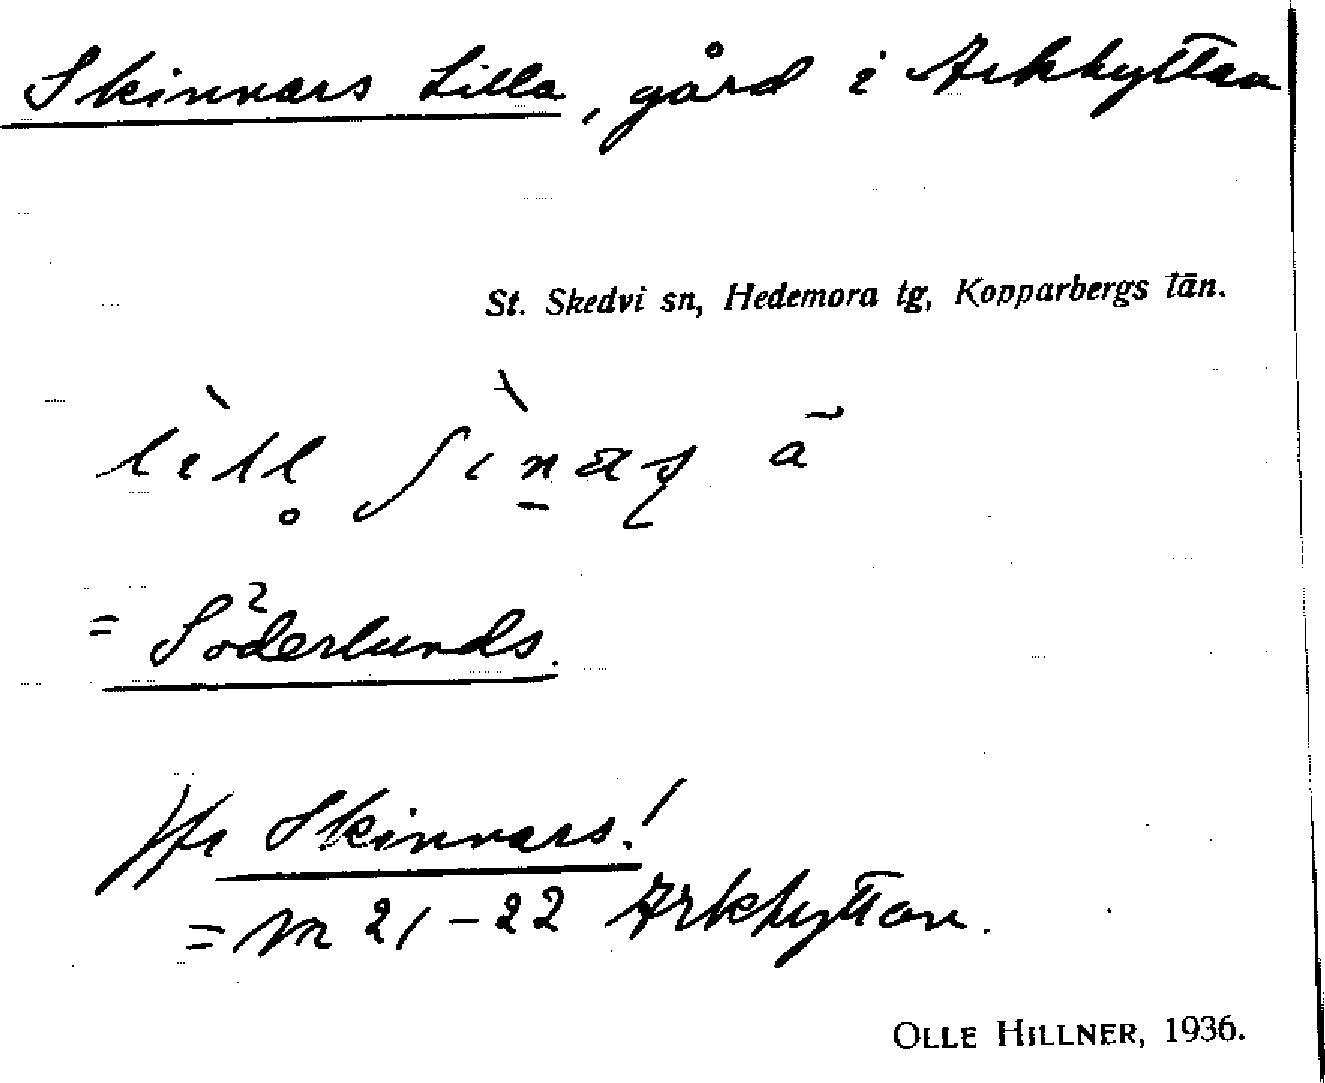 Skinnars Lilla, gård i Arkhyttan
St. Skedvi sn, Hedemora tg, Kopparbergs län.
= Söderlunds.
Jfr Skinnars!
= 21-22 Arkhyttan.
OLLE HILLNER, 1936.